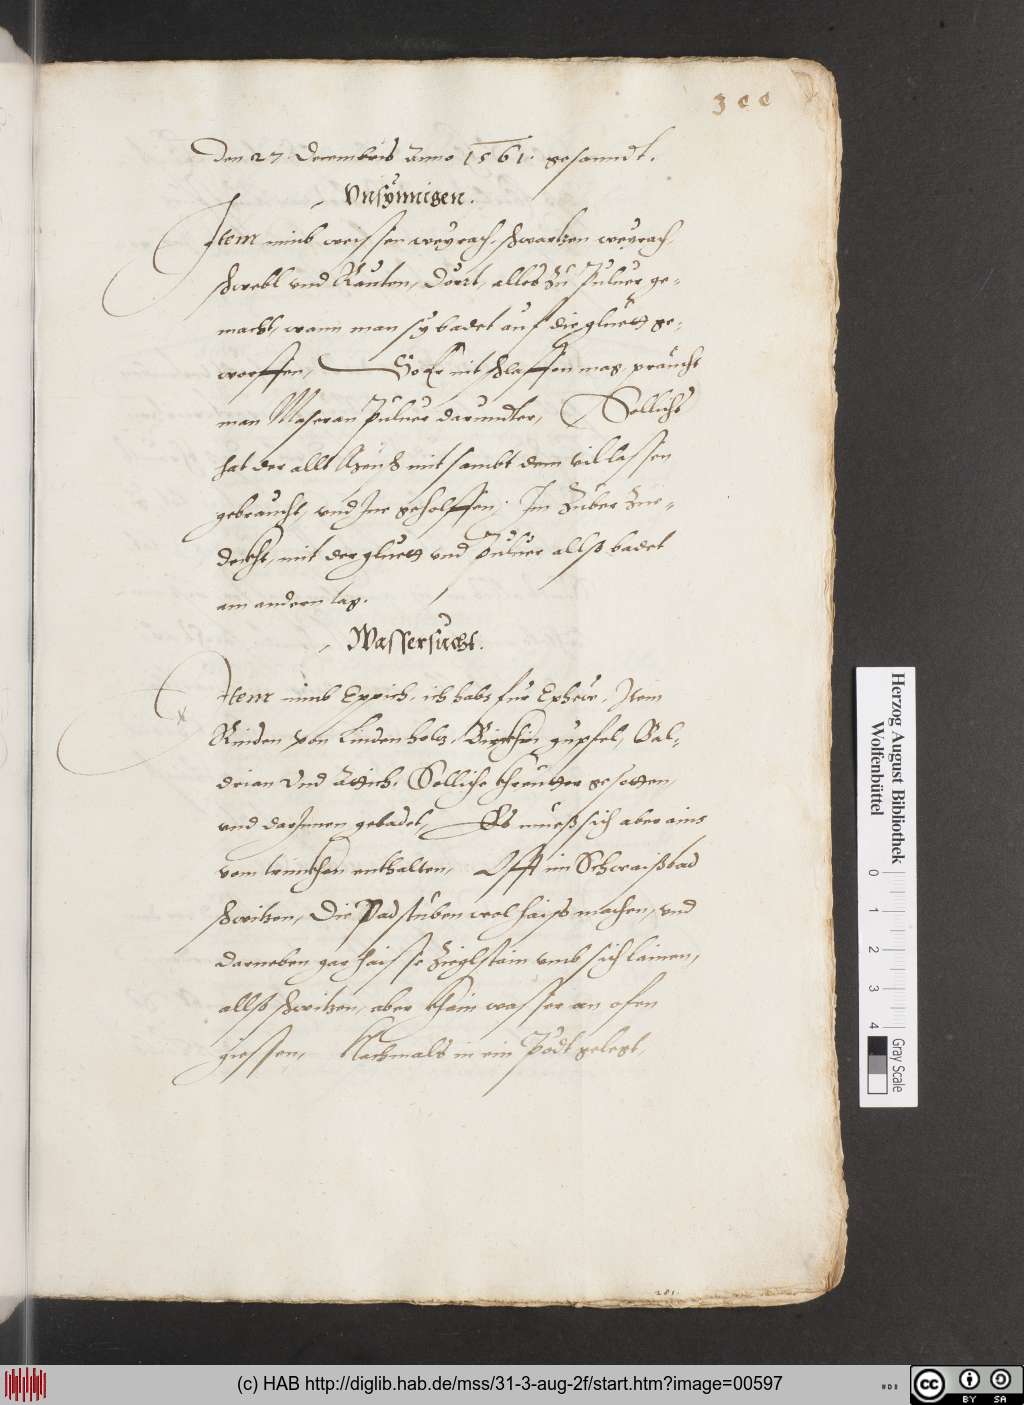 3 c c
Den 27 Decembris Anno 1561. gesanndt.
Vnsÿnnigen.
Item nimb weissen weyrach, schwartzen weyrach,
schwebl vnd Rauten, dörrt, alles zu Puluer ge-
macht, wann man sy badet auf die gluett ge-
worffen, So Er nit schlaffen mag, praucht
man Maseran Puluer darundter, Sollichs
hat der allt mit sambt dem vil lassen
gebraucht, vnd Ine geholffen. Im Zuber Zue-
deckht, mit der gluett vnd Puluer allso badet
am andern tag.
Wassersucht.
Item nimb Eppich, ich habs für Ephew, Item
Rinden von Lindenholtz, Birckhin gupfel, Bal-
drian Vnd Attich, Solliche Khreutter gesotten,
vnd darInnen gebadet, Es mueß sich aber ains
vom trinckhen enthalten, Offt im Schwaißbad
schwitzen, Die Padstuben wol haiss machen, vnd
darneben gar haisse Zieglstain vmb sich lainen,
allso schwitzen, aber khain wasser an ofen
giessen, Nachmals in ein Pödt gelegt,
281.
Herzog August Bibliothek
Wolfenbüttel
0 1 2 3 4
Gray Scale
(c) HAB http://diglib.hab.de/mss/31-3-aug-2f/start.htm?image=00597
cc BY SA